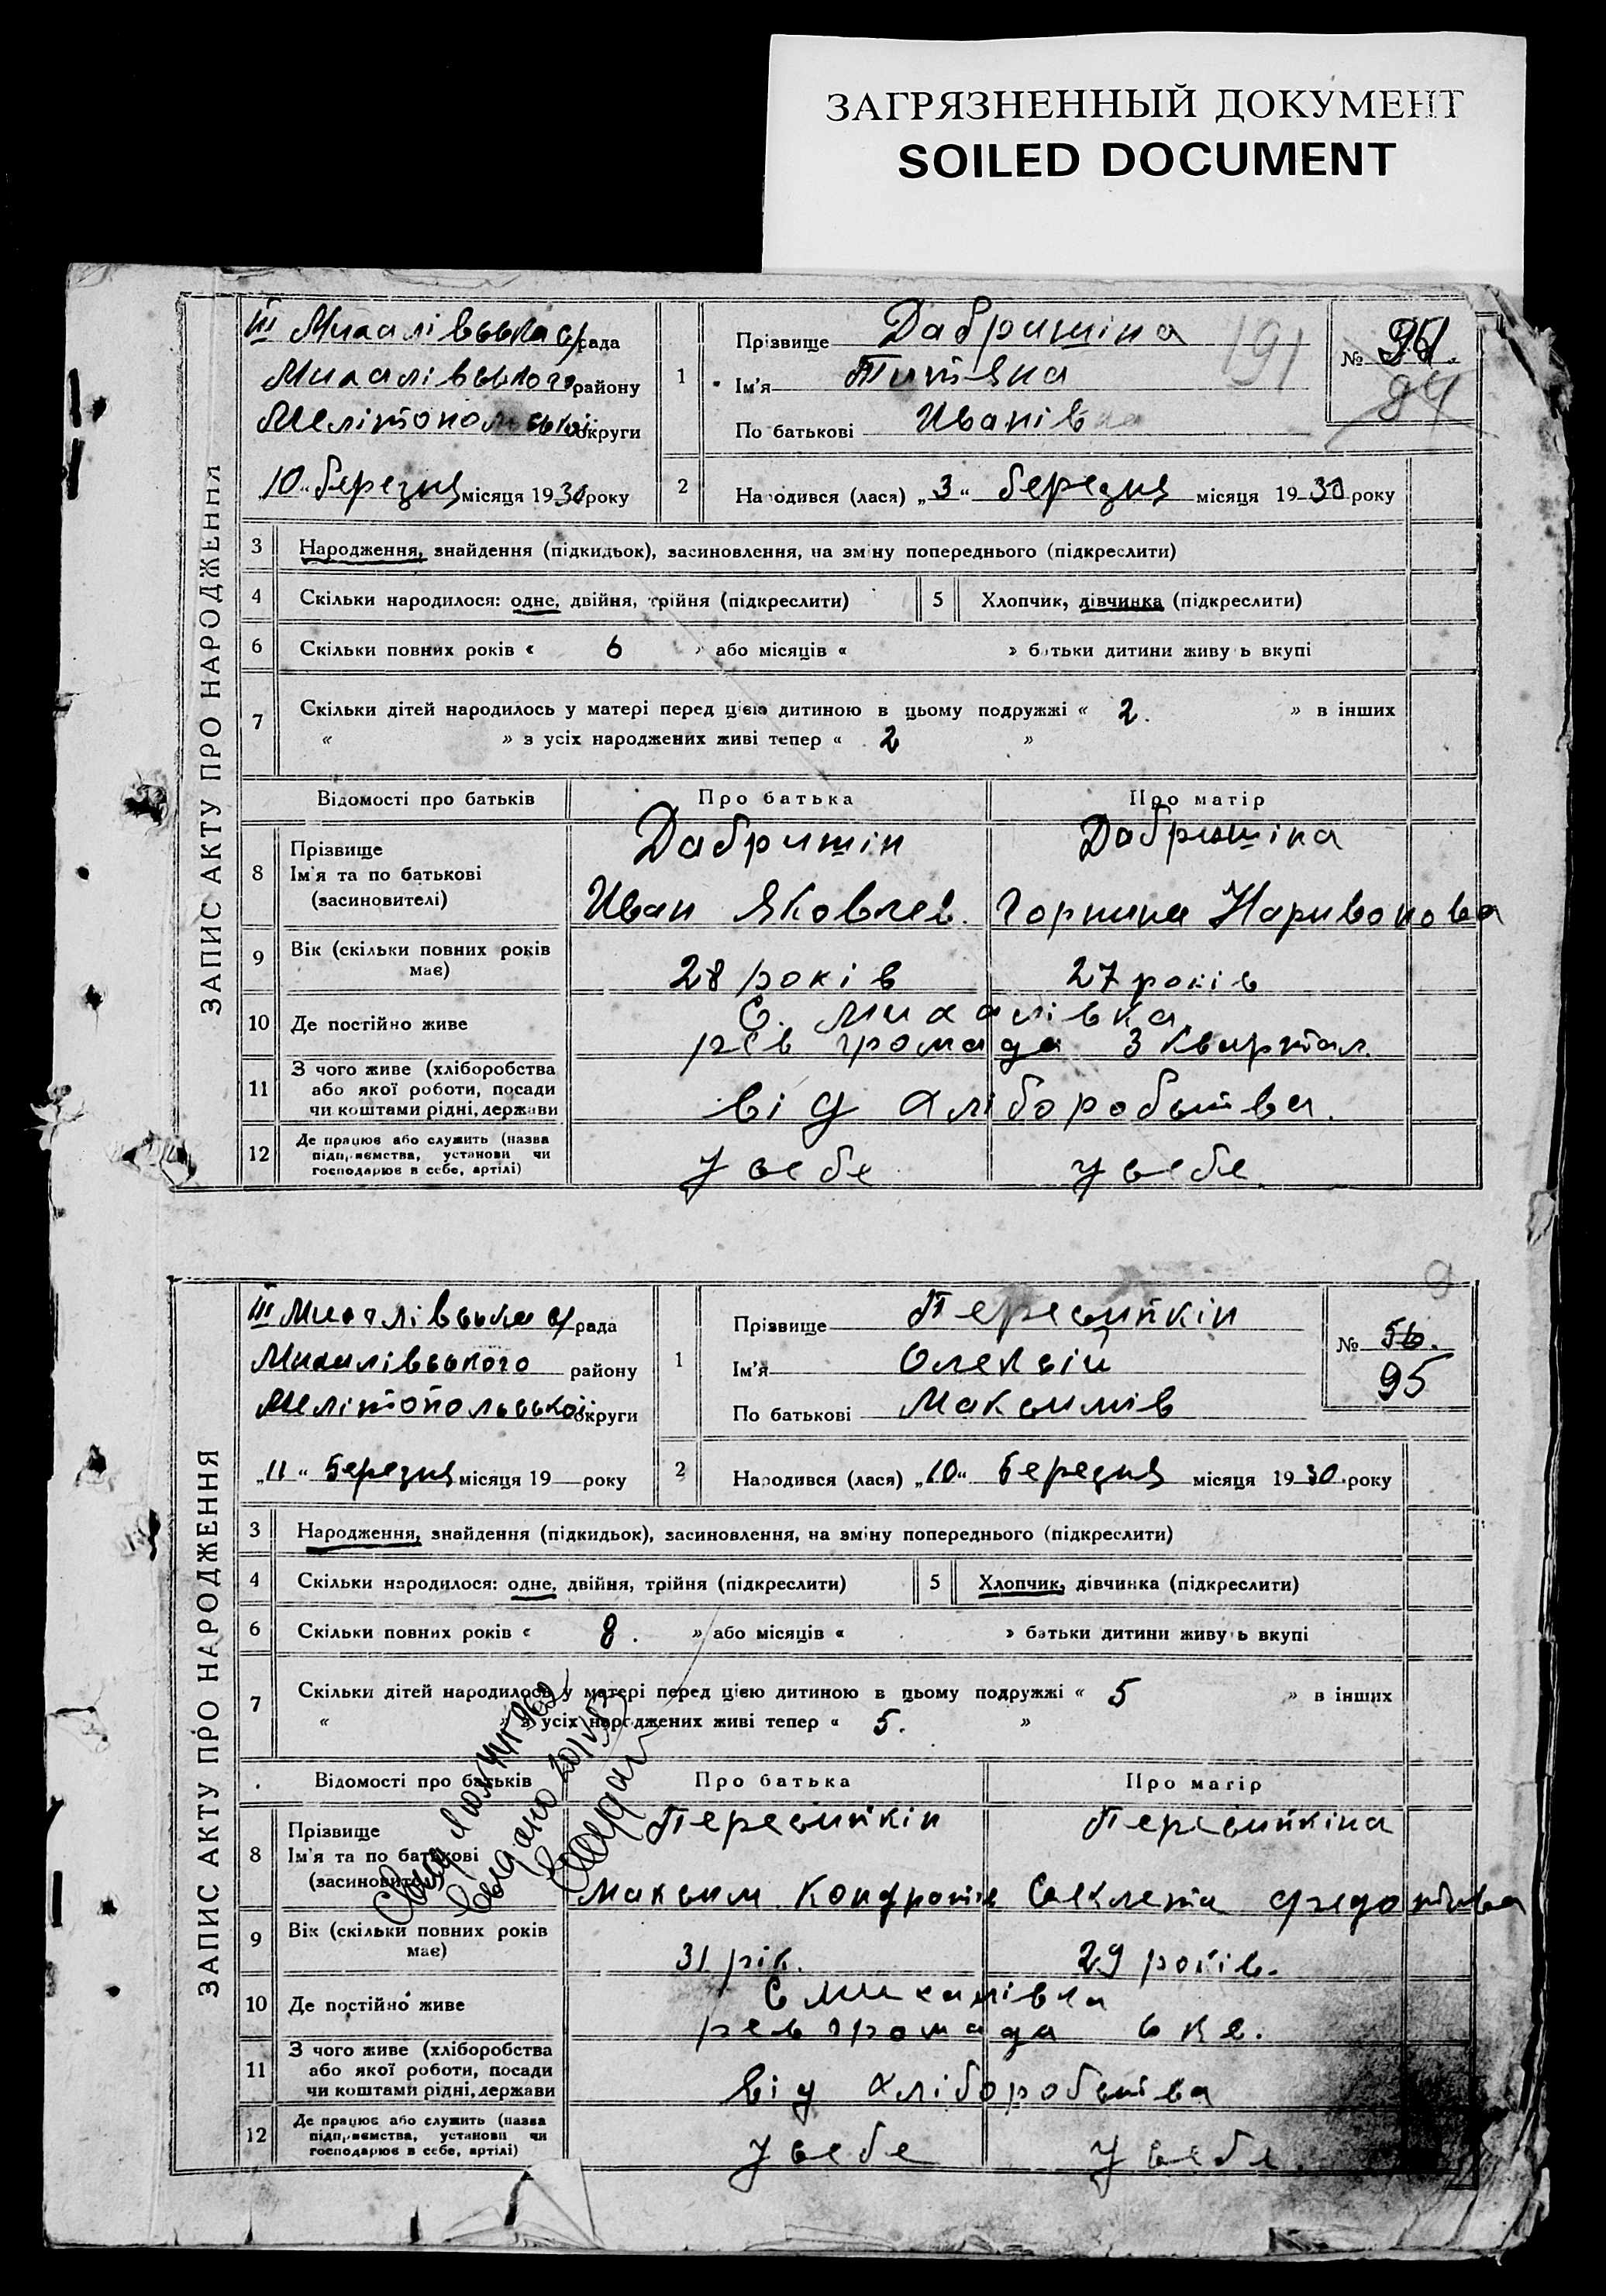 ЗАГРЯЗНЕННЫЙ ДОКУМЕНТ
SOILED DOCUMENT
ЗАПИС АКТУ ПРО НАРОДЖЕННЯ
III Михалівська с/рада
Михалівського району
Мелітопольської округи
10 " березня місяця 1930 року
1
Прізвище Дабришіна
Ім'я Титяна
По батькові Иванівна
191
№ 94
2
Народився (лася) „3" березня місяця 1930 року
3 Народження, знайдення (підкидьок), засиновлення, на зміну попереднього (підкреслити)
4 Скільки народилося: одне, двійня, трійня (підкреслити) 5 Хлопчик, дівчинка (підкреслити)
6 Скільки повних років « 6 » або місяців « » батьки дитини живуть вкупі
7 Скільки дітей народилось у матері перед цією дитиною в цьому подружжі « 2. » в інших
« » з усіх народжених живі тепер « 2 »
Відомості про батьків Про батька Про матір
8 Прізвище Дабришін Дабришіна
Ім'я та по батькові
(засиновителі) Иван Яковлев. Горпина Наривонова
9 Вік (скільки повних років має) 28 років 27 років
10 Де постійно живе С. Михалівка
рев громада 3 квартал.
11 З чого живе (хліборобства
або якої роботи, посади
чи коштами рідні, держави від хліборобства.
12 Де працює або служить (назва
підприємства, установи чи
господарює в себе, артілі) у себе у себе.
ЗАПИС АКТУ ПРО НАРОДЖЕННЯ
III Михалівська с/рада
Михалівського району
Мелітопольської округи
„11" Березня місяця 19 року
1
Прізвище Пересипкін
Ім'я Олексій
По батькові Максимів
9
№ 56.
95
2
Народився (лася) „10" Березня місяця 1930. року
3 Народження, знайдення (підкидьок), засиновлення, на зміну попереднього (підкреслити)
4 Скільки народилося: одне, двійня, трійня (підкреслити) 5 Хлопчик, дівчинка (підкреслити)
6 Скільки повних років « 8. » або місяців « » батьки дитини живуть вкупі
7 Скільки дітей народилось у матері перед цією дитиною в цьому подружжі « 5 » в інших
« » з усіх народжених живі тепер « 5. »
Відомості про батьків Про батька Про матір
8 Прізвище Пересипкін Пересипкіна
Ім'я та по батькові
(засиновителі) Максим Кондратів Секлета Федотівна
9 Вік (скільки повних років має) 31 рік. 29 років.
10 Де постійно живе С Михалівка
рев громада 6 кв.
11 З чого живе (хліборобства
або якої роботи, посади
чи коштами рідні, держави від хліборобства
12 Де працює або служить (назва
підприємства, установи чи
господарює в себе, артілі) у себе у себе.